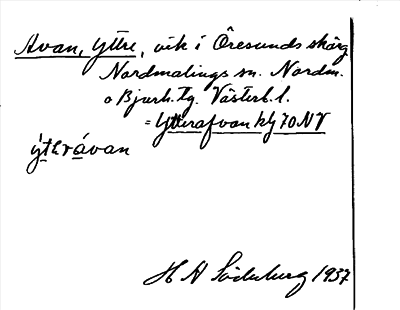 Avan, Yttre, vik i Öresunds skärg.
Nordmalings sn. Nordm.
o Bjurh. Tg. Västerb. l.
= Ytterafvan kbl 70 NV
ýtərávan
H A Söderberg 1937